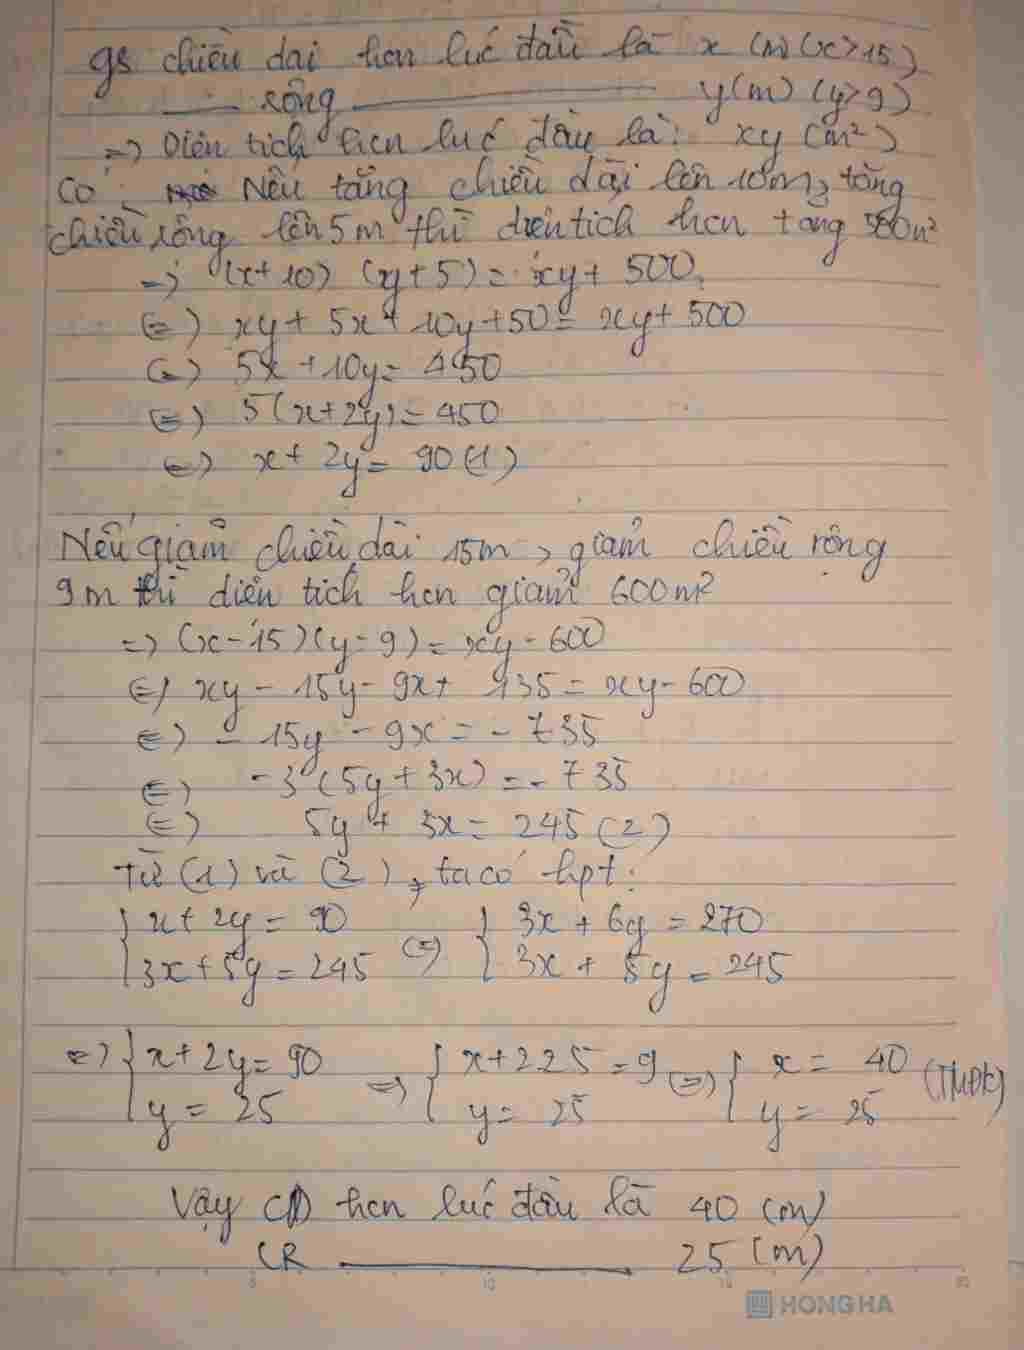 gs chiều dài hcn lúc đầu là x (m) (x>15)
rộng y(m) (y>9)
=> Diện tích hcn lúc đầu là: xy (m²)
Có: Nếu tăng chiều dài lên 10m, tăng
chiều rộng lên 5m thì diện tích hcn tăng 500m²
=> (x+10) (y+5) = xy + 500
<=> xy + 5x + 10y + 50 = xy + 500
<=> 5x + 10y = 450
<=> 5(x+2y) = 450
<=> x + 2y = 90 (1)
Nếu giảm chiều dài 15m, giảm chiều rộng
9m thì diện tích hcn giảm 600m²
=> (x-15)(y-9) = xy - 600
<=> xy - 15y - 9x + 135 = xy - 600
<=> - 15y - 9x = - 735
<=> -3 (5y + 3x) = - 735
<=> 5y + 3x = 245 (2)
Từ (1) và (2), ta có hpt:
{ x + 2y = 90 <=> { 3x + 6y = 270
{ 3x + 5y = 245 { 3x + 5y = 245
<=> { x + 2y = 90 => { x + 2.25 = 9 <=> { x = 40 (TMĐK)
{ y = 25 { y = 25 { y = 25
Vậy CD hcn lúc đầu là 40 (m)
CR 25 (m)
HONG HA